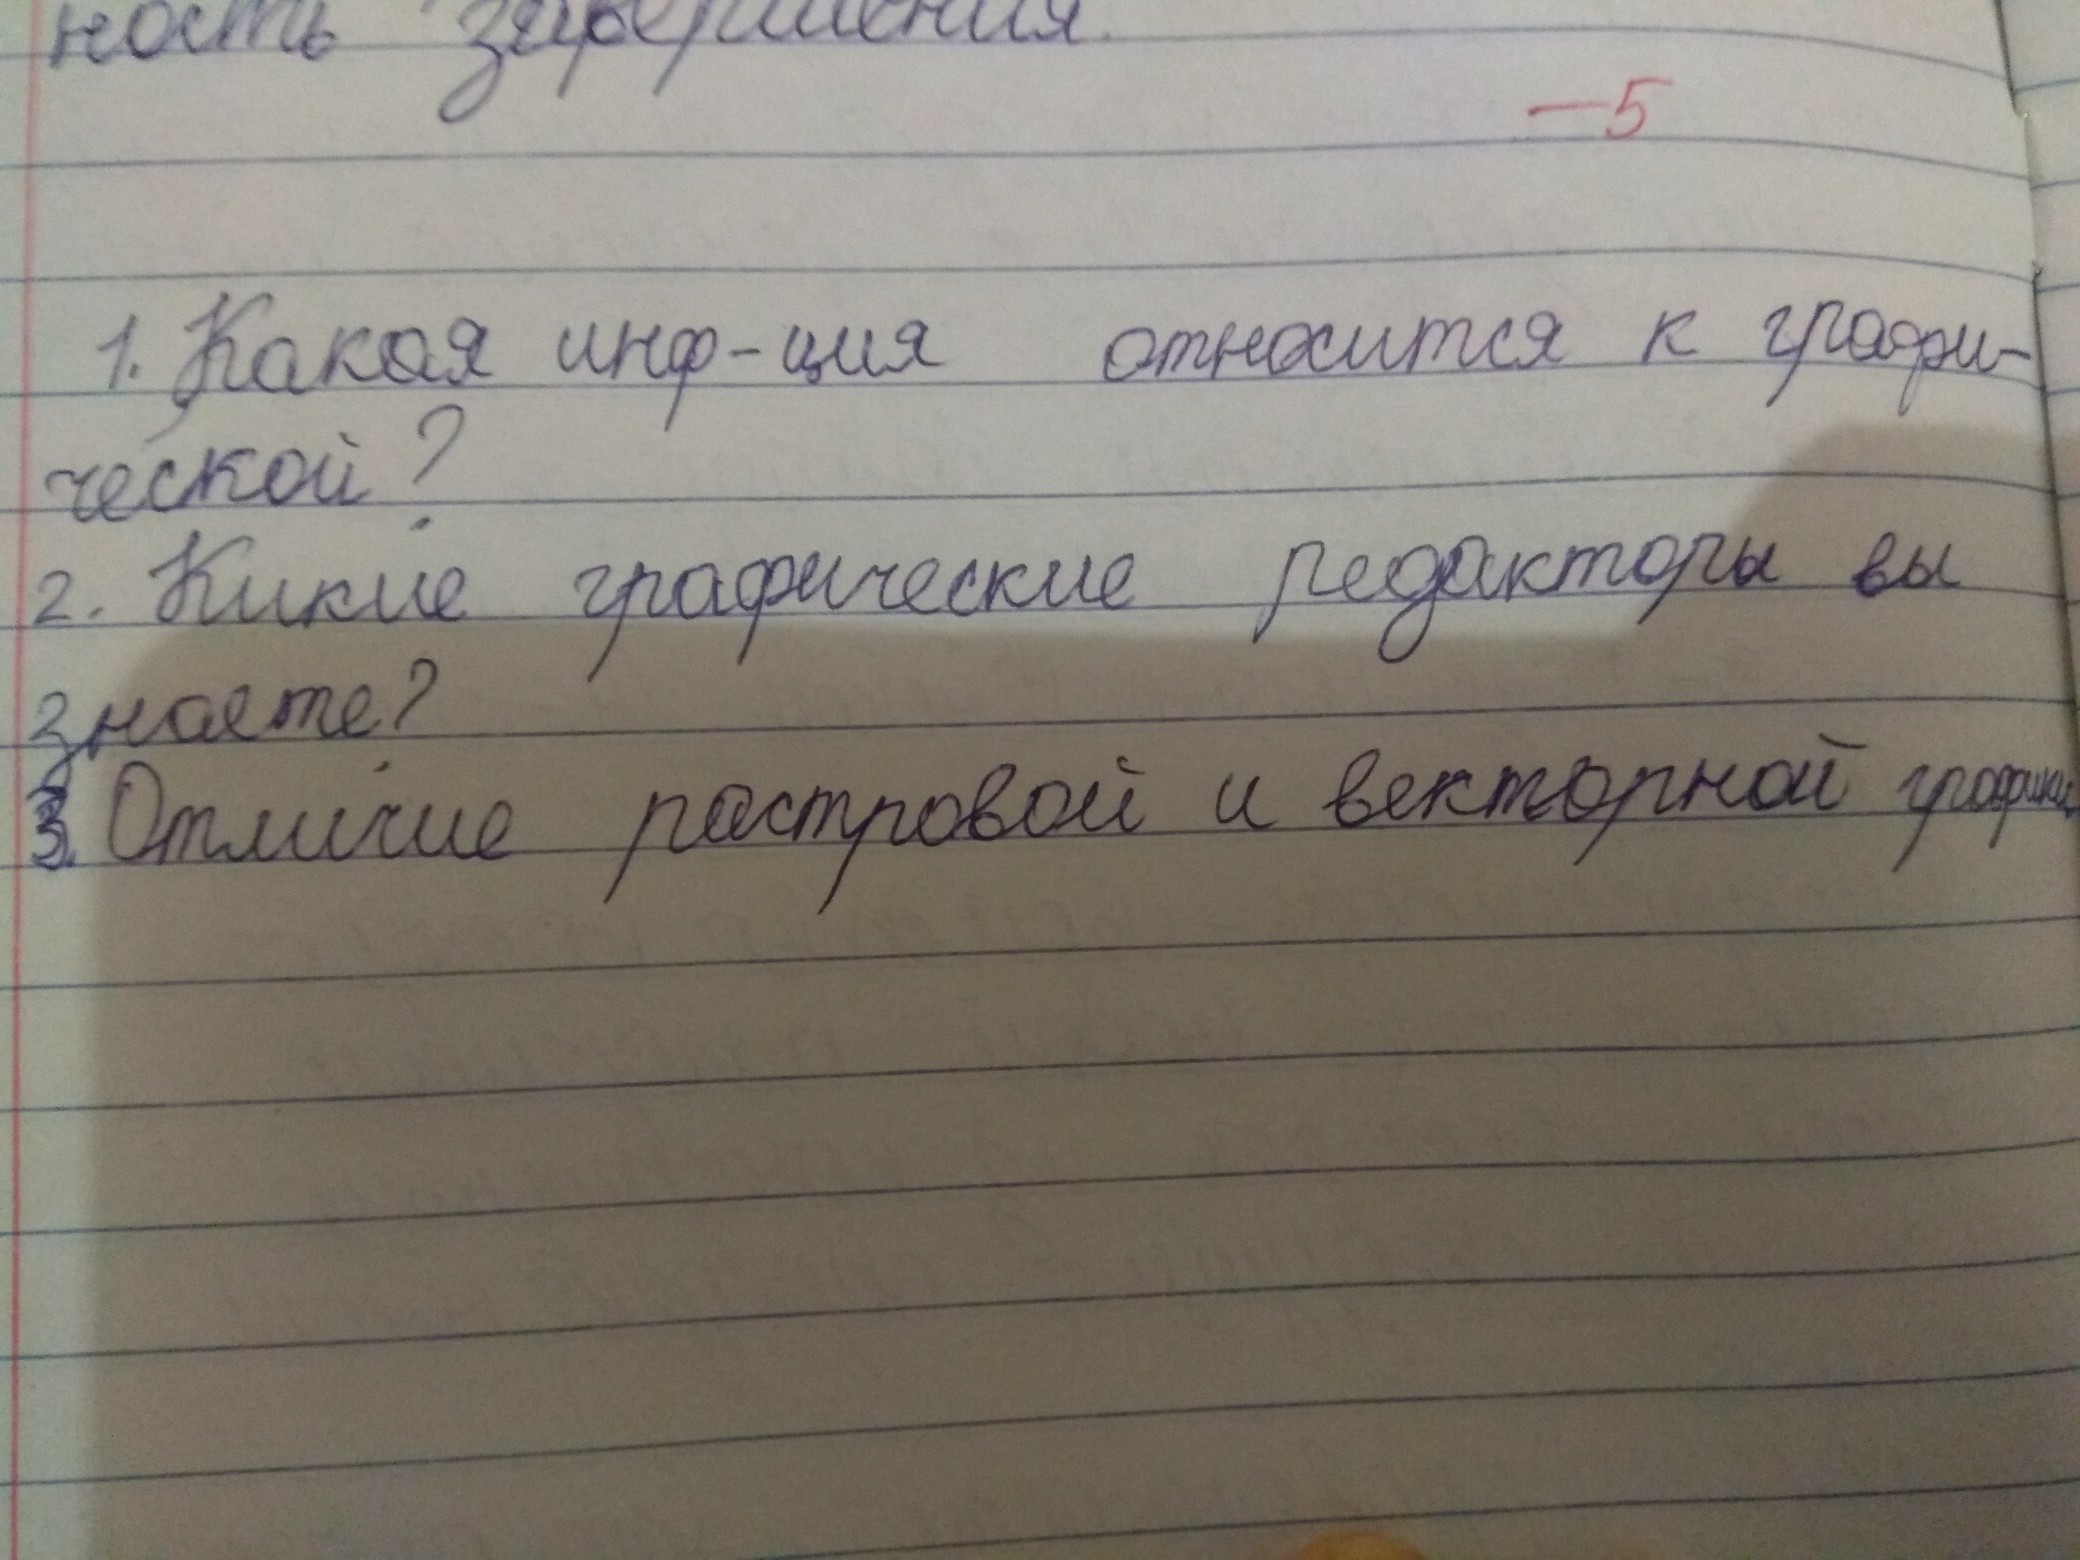 ность завершения.
—5
1. Какая инф-ция относится к графи-
ческой?
2. Кикие графические редакторы вы
знаете?
3. Отличие растровой и векторной графики.